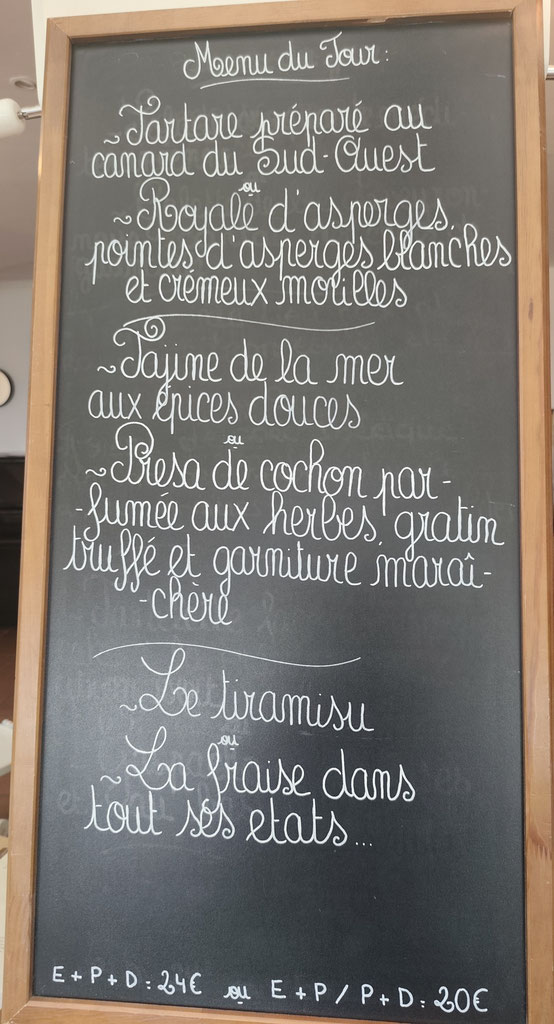 Menu du Jour:
~Tartare préparé au
canard du Sud-Ouest
ou
~Royale d'asperges,
pointes d'asperges blanches
et crémeux morilles
~Tajine de la mer
aux épices douces
ou
~Presa de cochon par-
-fumée aux herbes, gratin
truffé et garniture maraî-
-chère
~Le tiramisu
ou
~La fraise dans
tout ses etats...
E+P+D: 24€ ou E+P/P+D: 20€